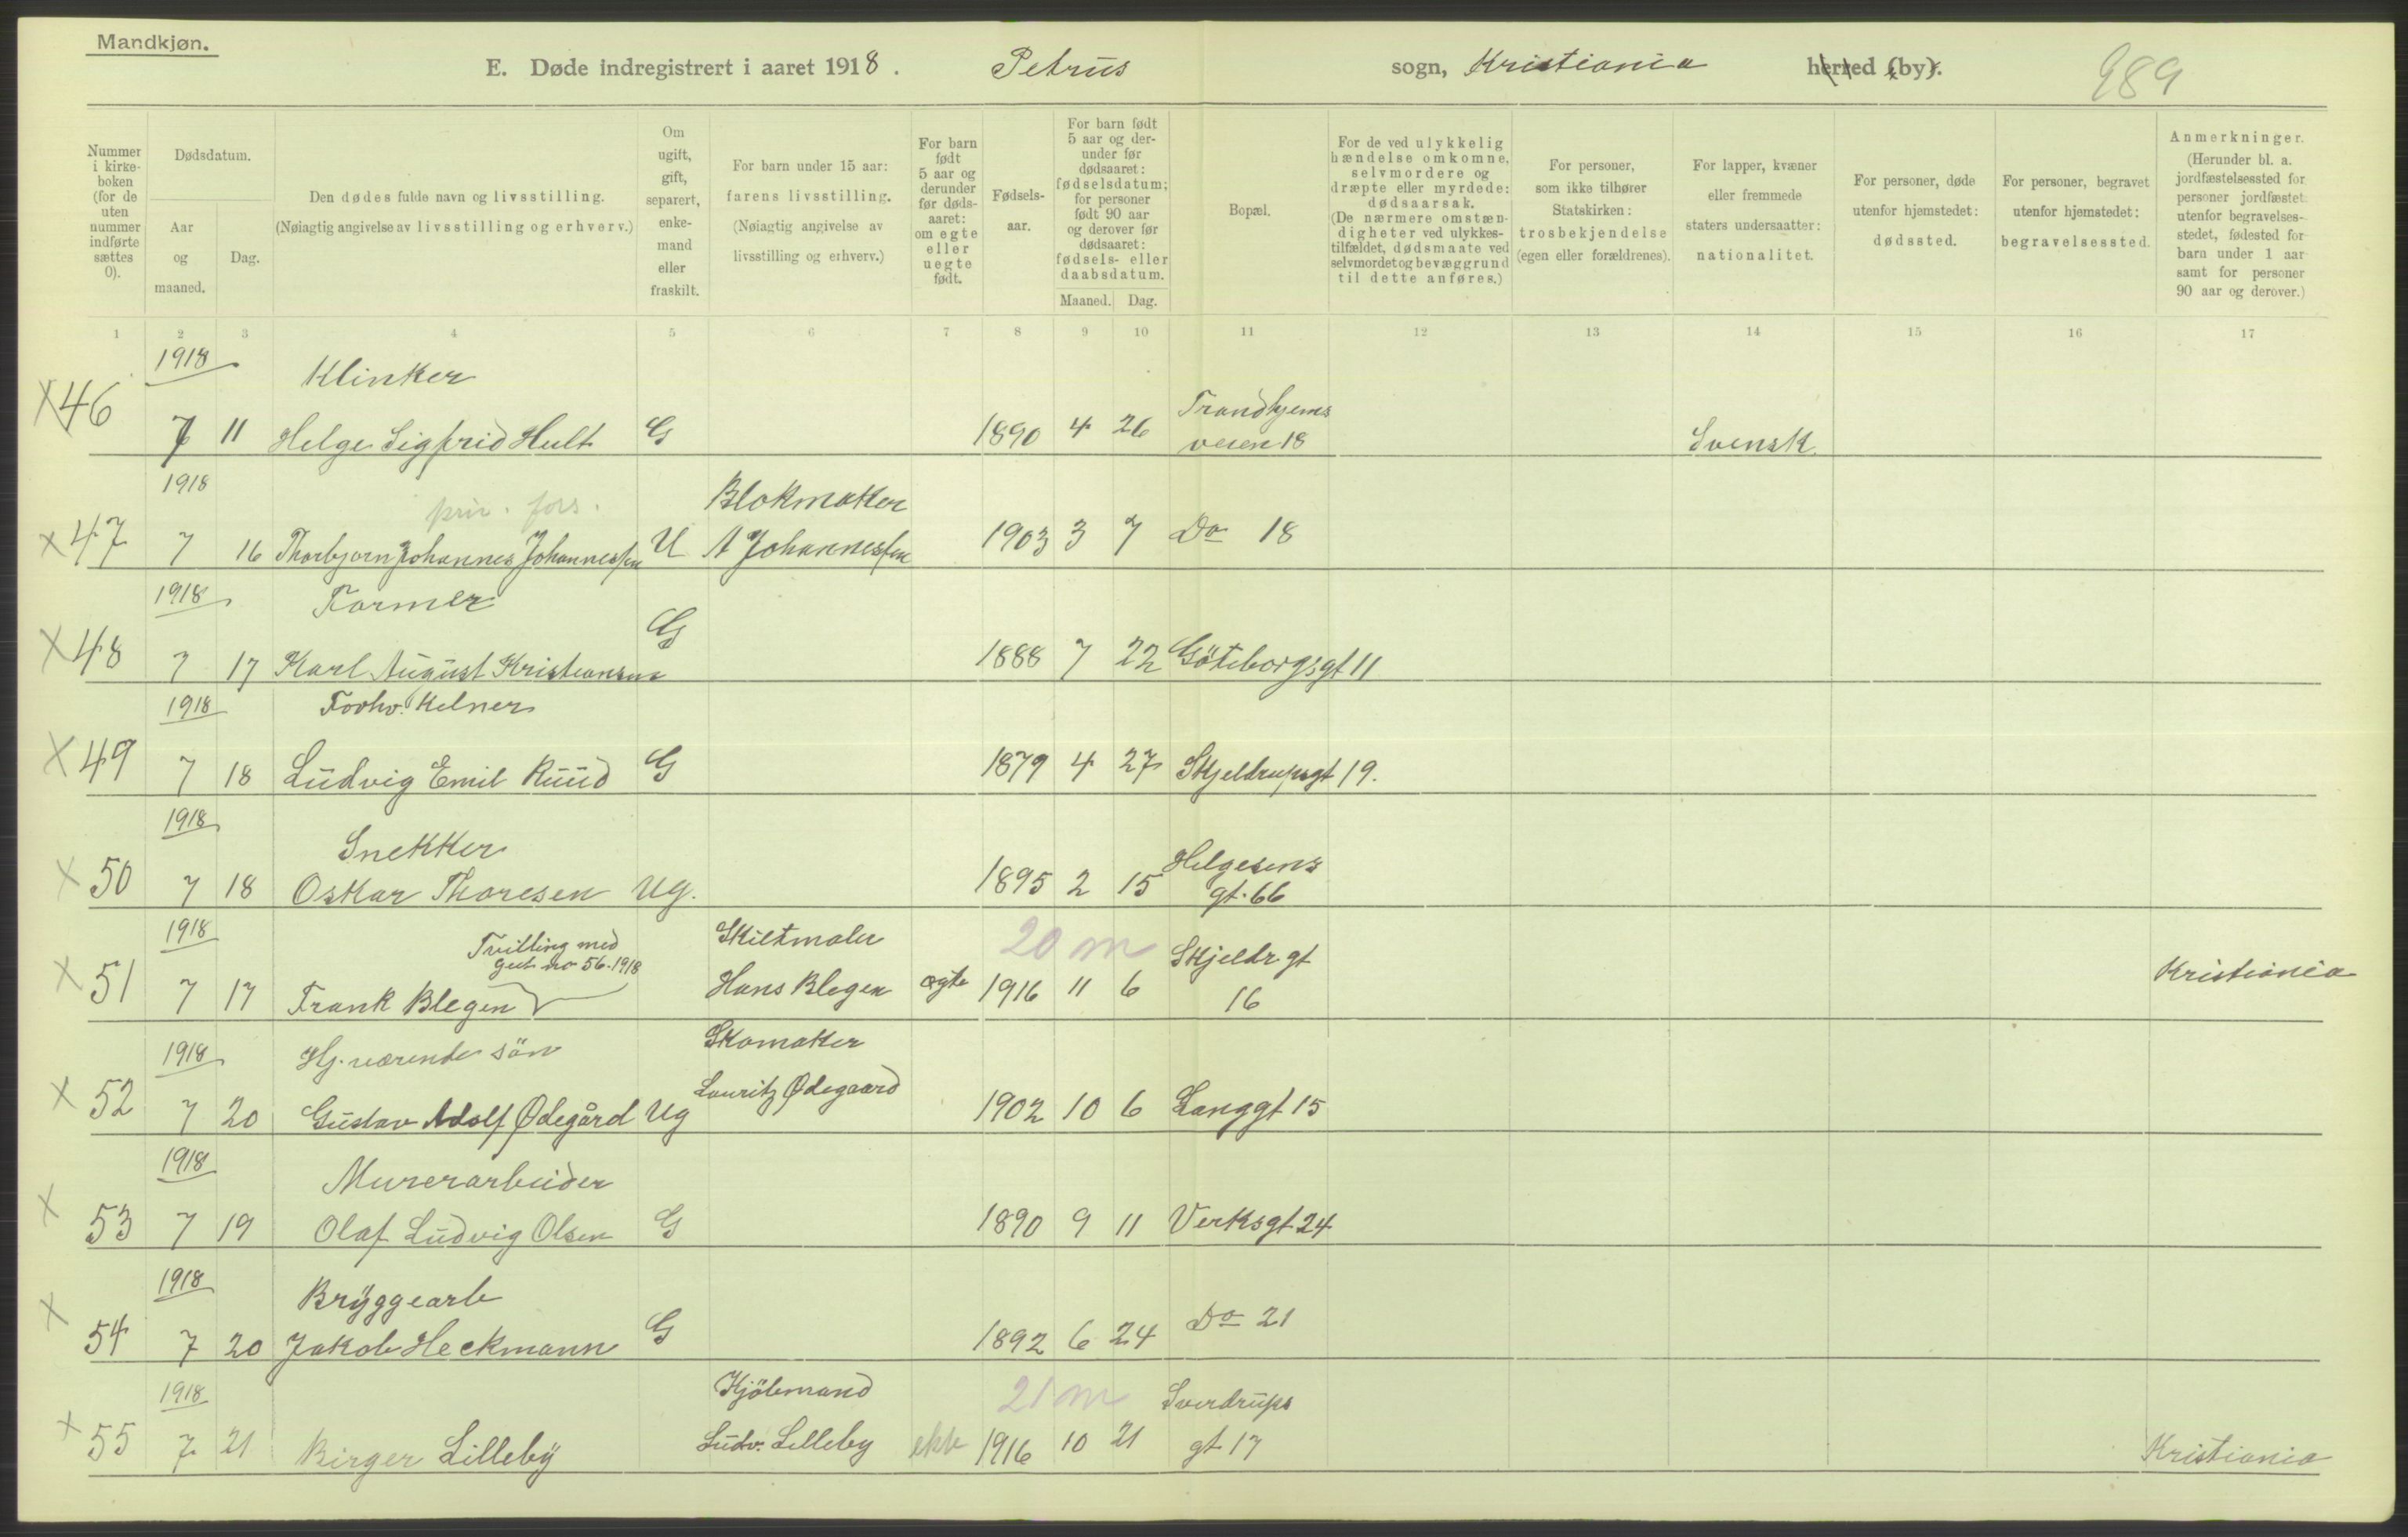 Mandkjøn.
E. Døde indregistrert i aaret 1918. Petrus sogn, Kristiania herred (by).
989
Nummer i kirkeboken (for de uten nummer indførte sættes 0).
Dødsdatum.
Aar og maaned.
Dag.
Den dødes fulde navn og livsstilling.
(Nøiagtig angivelse av livsstilling og erhverv.)
Om ugift, gift, separert, enkemand eller fraskilt.
For barn under 15 aar:
farens livsstilling.
(Nøiagtig angivelse av livsstilling og erhverv.)
For barn født 5 aar og derunder før dødsaaret: om egte eller uegte født.
Fødselsaar.
For barn født 5 aar og derunder før dødsaaret: fødselsdatum; for personer født 90 aar og derover før dødsaaret: fødsels- eller daabsdatum.
Maaned. Dag.
Bopæl.
For de ved ulykkelig hændelse omkomne, selvmordere og dræpte eller myrdede: dødsaarsak.
(De nærmere omstændigheter ved ulykkestilfældet, dødsmaate ved selvmordet og bevæggrund til dette anføres.)
For personer, som ikke tilhører Statskirken: trosbekjendelse (egen eller forældrenes).
For lapper, kvæner eller fremmede staters undersaatter: nationalitet.
For personer, døde utenfor hjemstedet: dødssted.
For personer, begravet utenfor hjemstedet: begravelsessted.
Anmerkninger.
(Herunder bl. a. jordfæstelsessted for personer jordfæstet utenfor begravelsesstedet, fødested for barn under 1 aar samt for personer 90 aar og derover.)
1 2 3 4 5 6 7 8 9 10 11 12 13 14 15 16 17
1918 Klinker
X 46 7 11 Helge Sigfrid Hult G 1890 4 26 Trondhjems veien 18 Svensk
1918 priv. fors. Blokmaker
X 47 7 16 Thorbjørn Johannes Johannessen U A Johannessen 1903 3 7 Do 18
1918 Formær
X 48 7 17 Karl August Kristiansen G 1888 7 22 Göteborgsgt 11
1918 Forhv. Kelner
X 49 7 18 Ludvig Emil Ruud G 1879 4 27 Skjeldrupsgt 19.
1918 Snekker
X 50 7 18 Oskar Thoresen Ug. 1895 2 15 Helgesens gt. 66
1918 Tvilling med gut no 56-1918 Skiltmaler 20 m Skjeldr gt
X 51 7 17 Frank Blegen Hans Blegen ægte 1916 11 6 16 Kristiania
1918 Hj. værende sön Skomaker
X 52 7 20 Gustav Adolf Ødegård Ug Lauritz Ødegaard 1902 10 6 Langgt 15
1918 Murerarbeider
X 53 7 19 Olaf Ludvig Olsen G 1890 9 11 Verksgt 24
1918 Bryggearb
X 54 7 20 Jakob Heckmann G 1892 6 24 Do 21
1918 Kjölemand 21 m Sverdrups
X 55 7 21 Birger Lilleby Ludv. Lilleby ekte 1916 10 21 gt 17 Kristiania